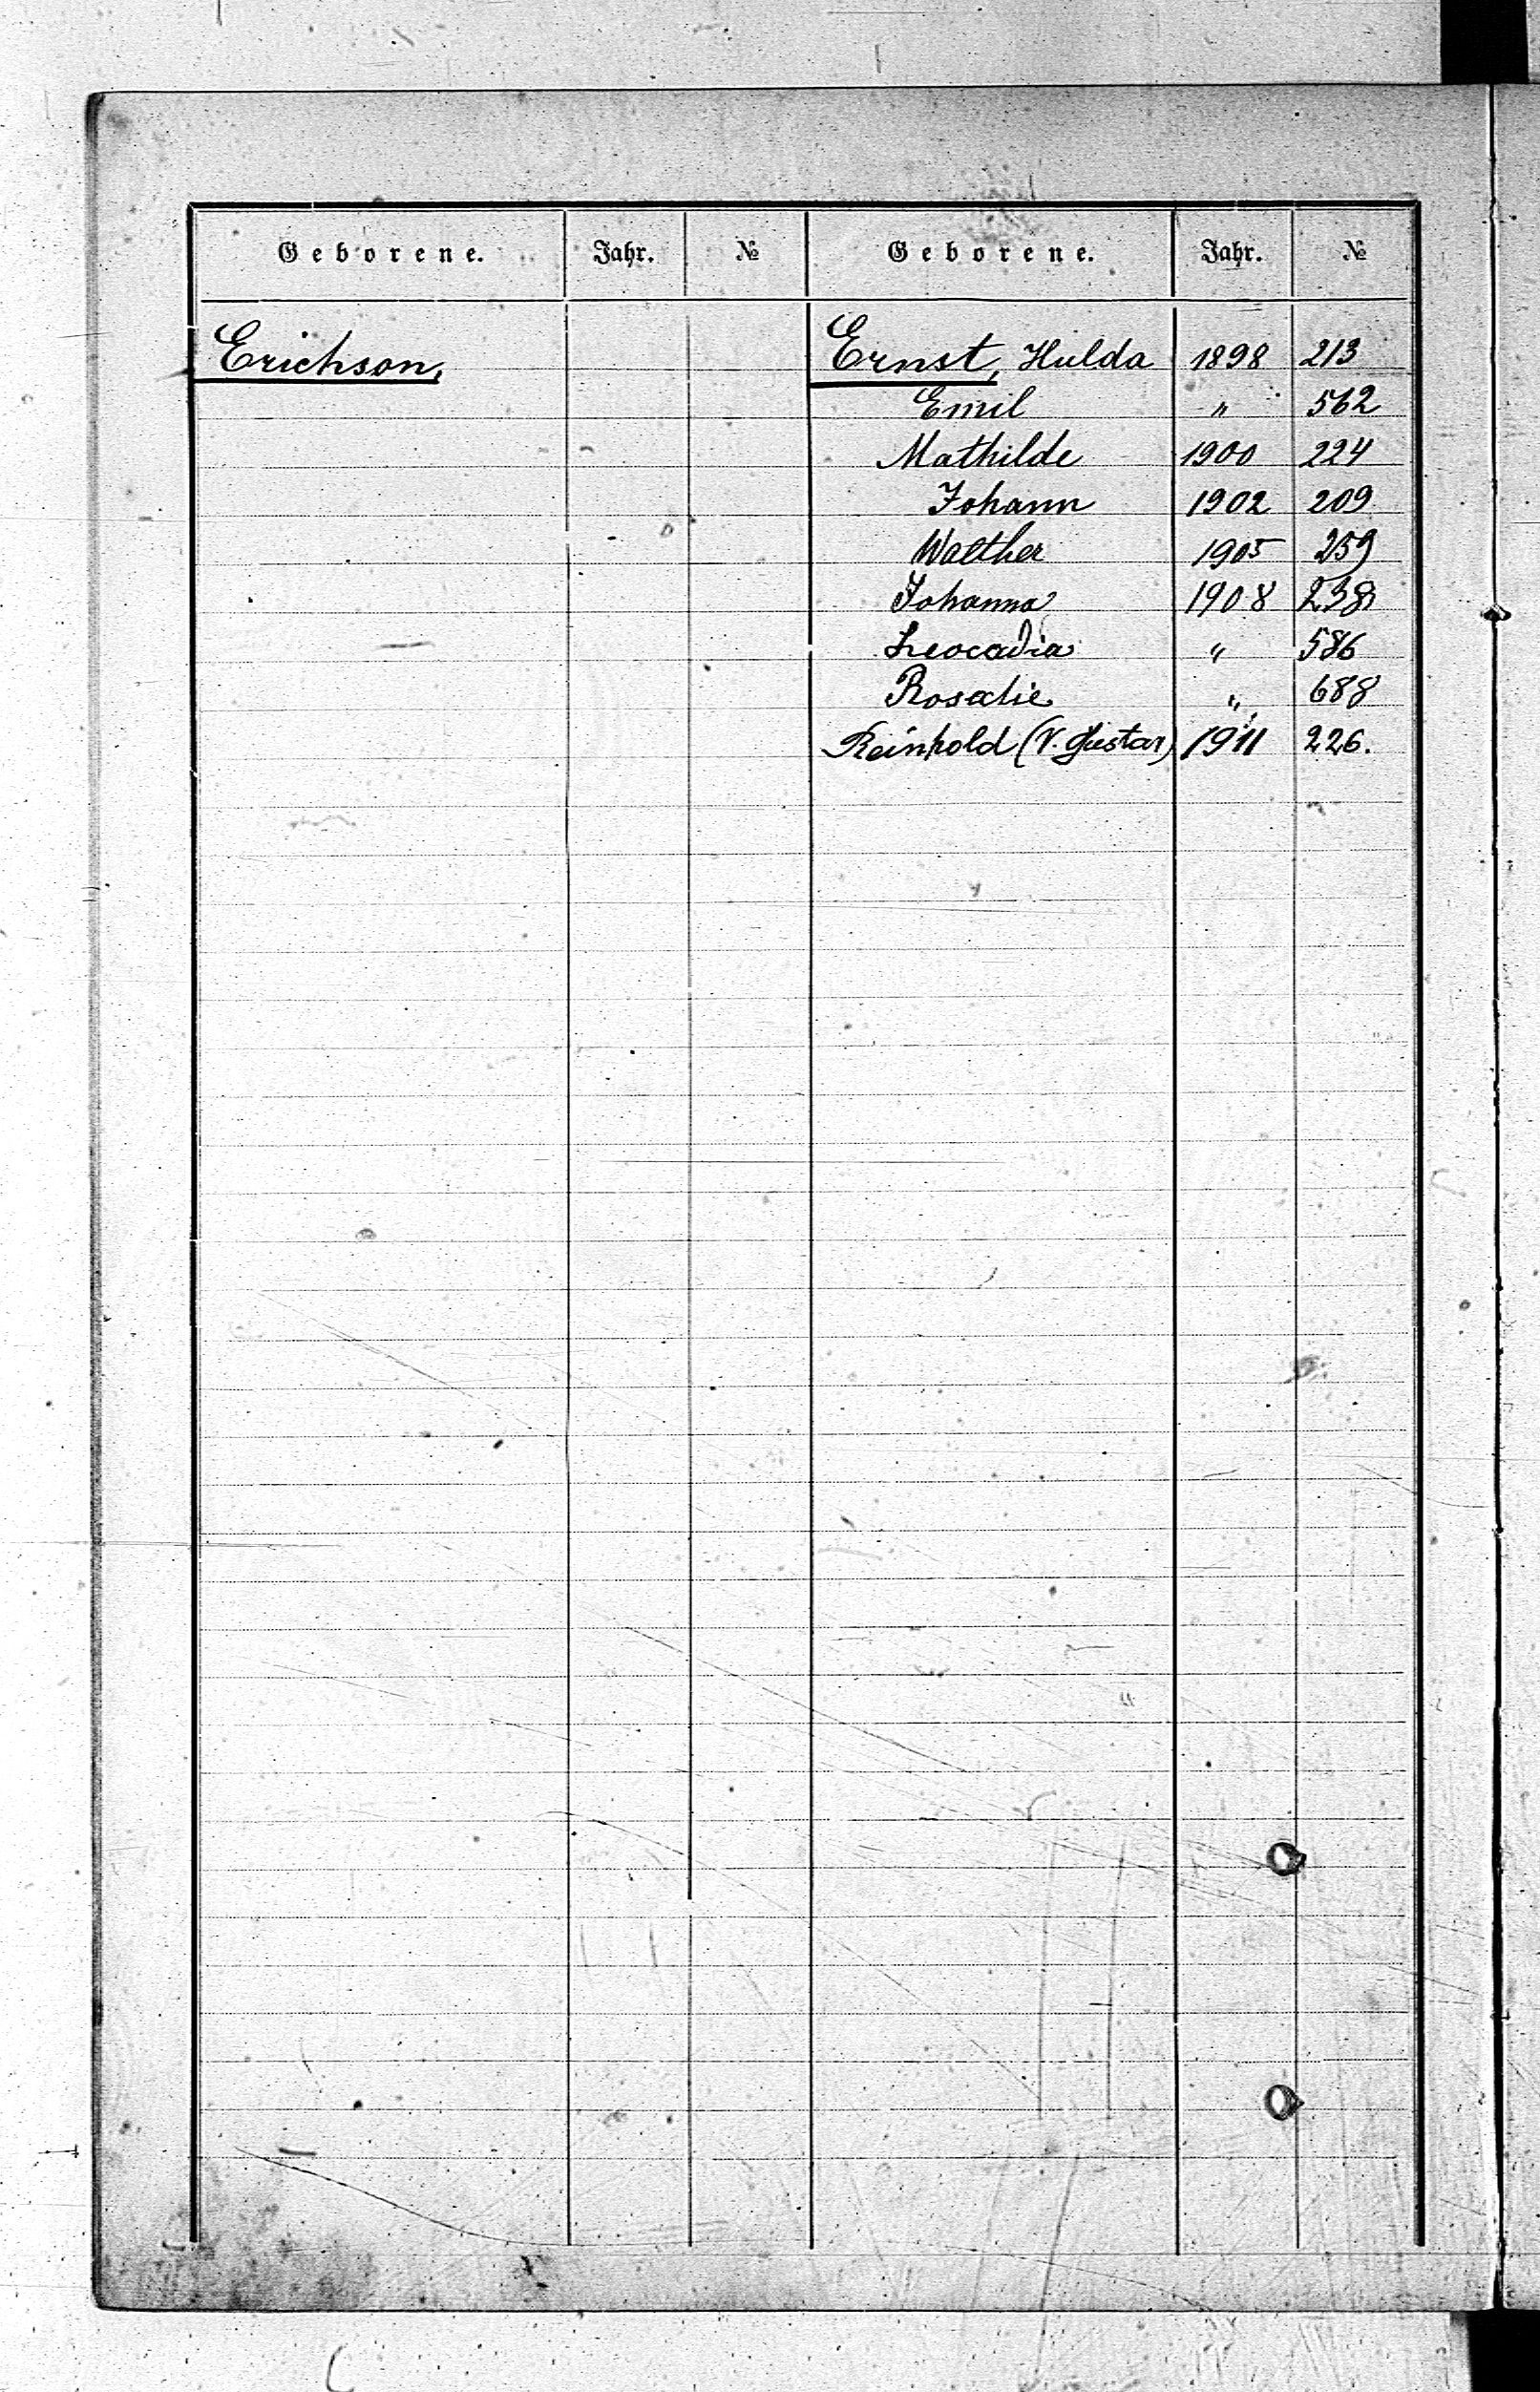 Geborene. Jahr. № Geborene. Jahr. №
Erichson,
Ernst, Hulda 1898 213
Emil " 562
Mathilde 1900 224
Johann 1902 209
Walther 1905 259
Johanna 1908 238
Leocadia " 586
Rosalie " 688
Reinhold (V. Gustav) 1911 226.